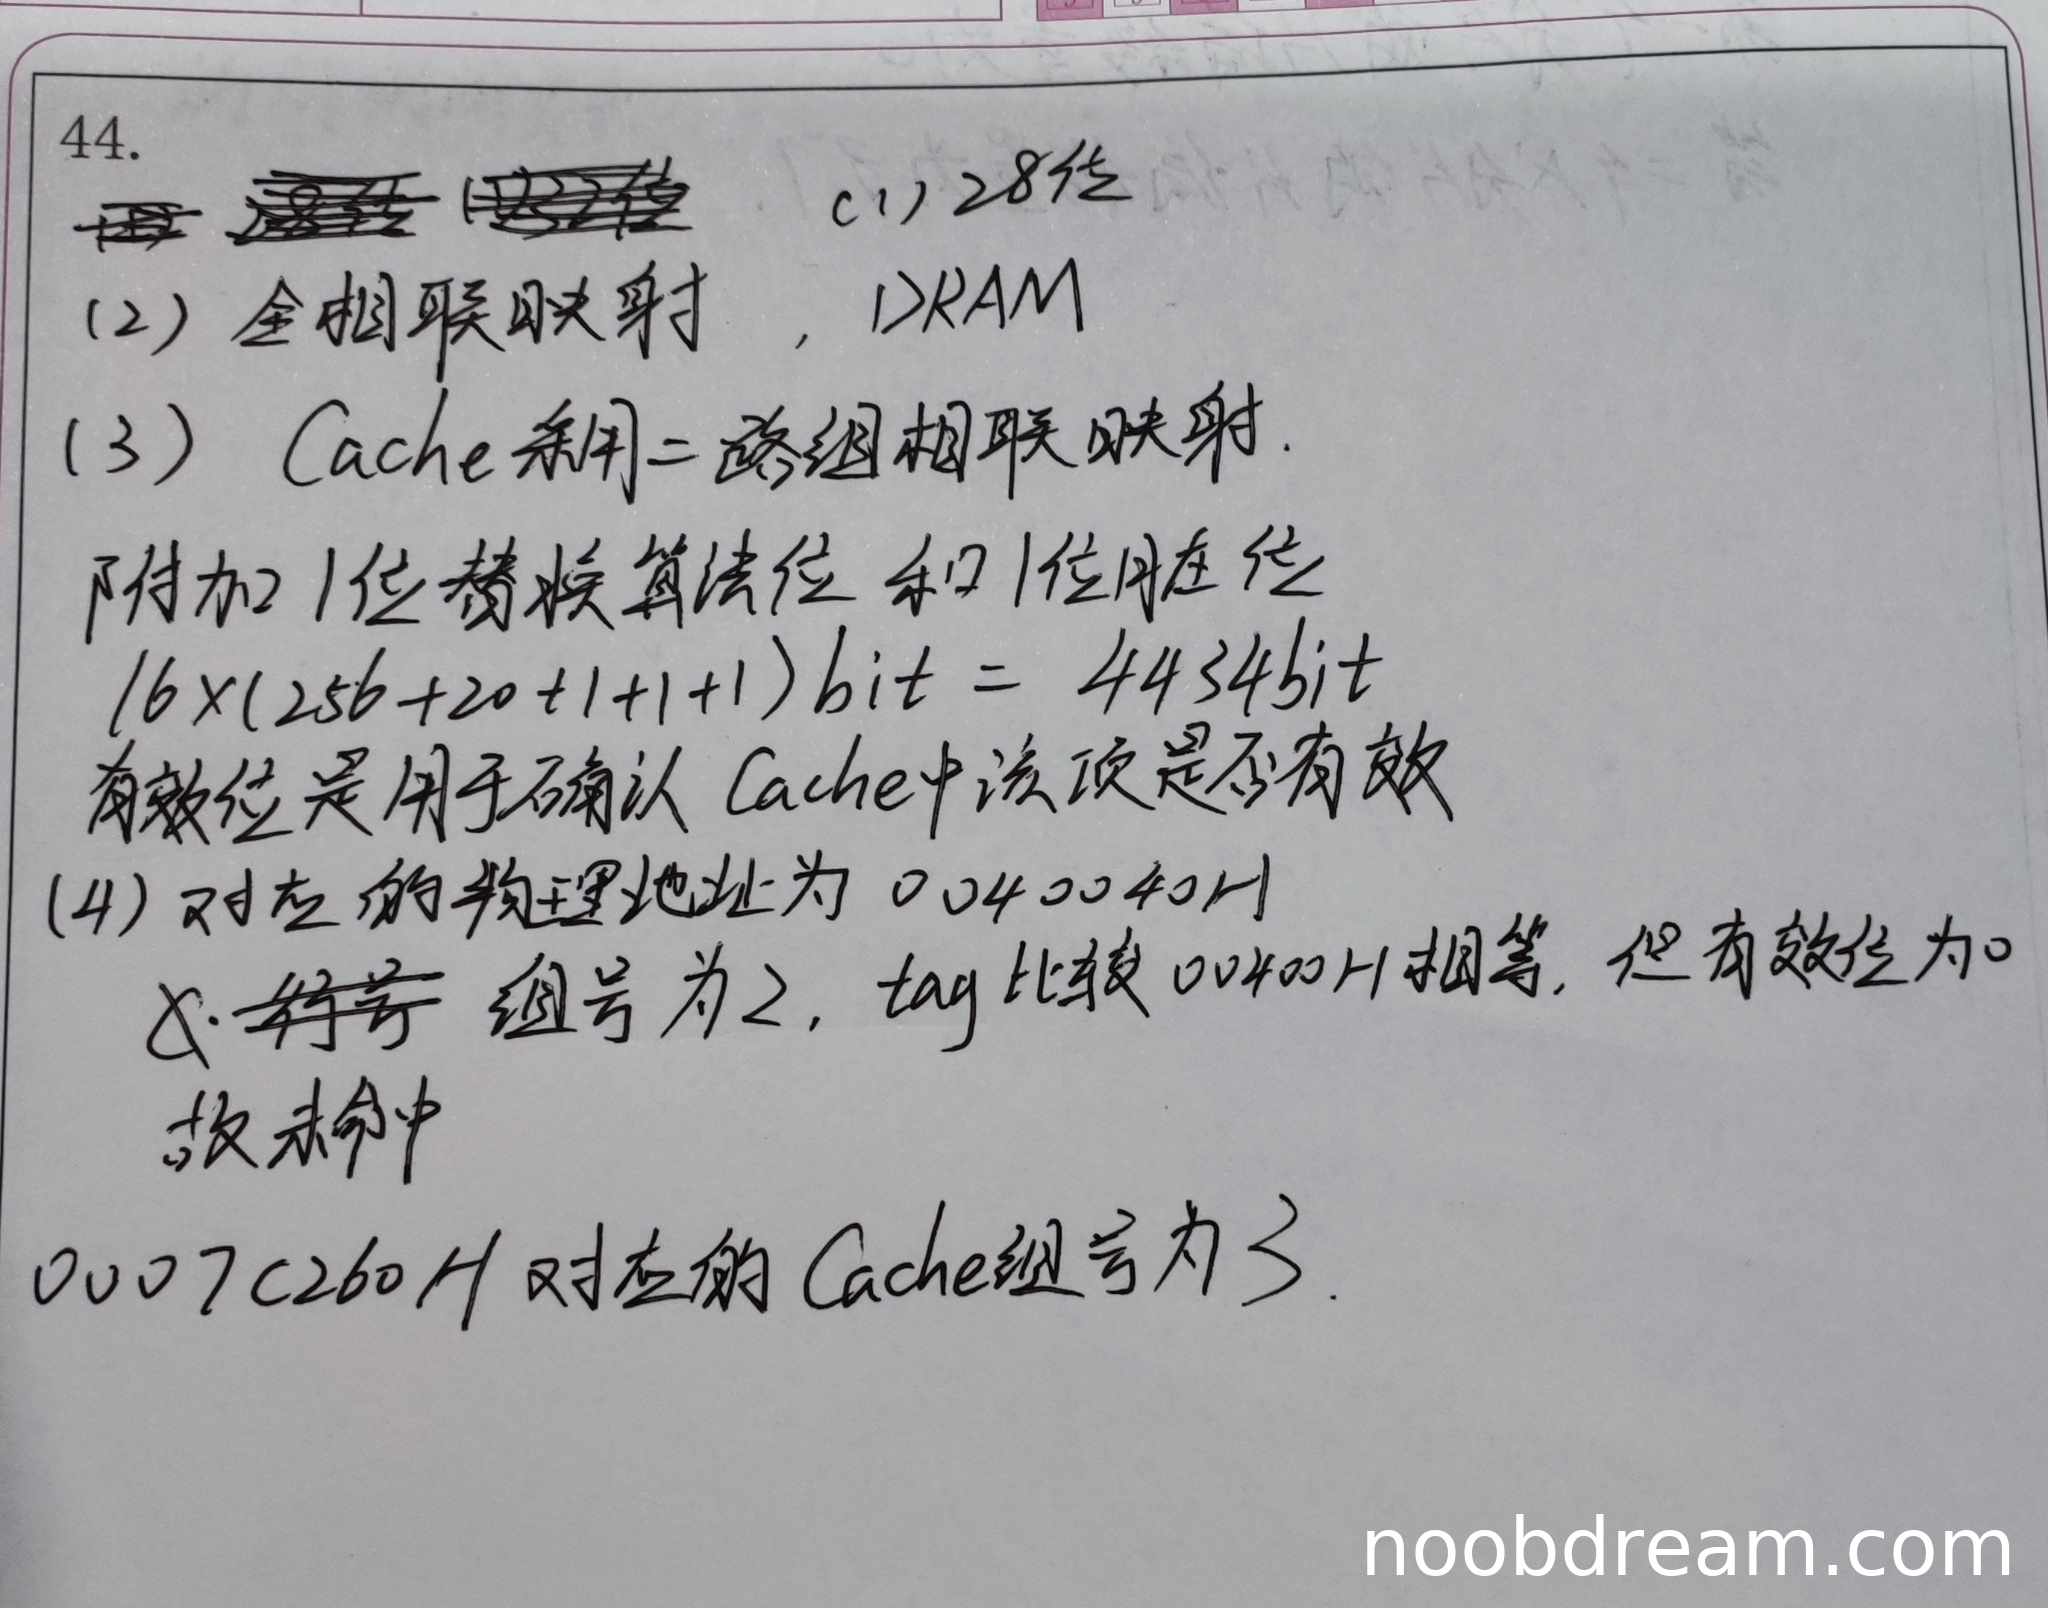 44.
(1) 28位
(2) 全相联映射 , DRAM
(3) Cache采用二路组相联映射.
附加1位替换算法位和1位脏位
16×(256+20+1+1+1)bit = 4434bit
有效位是用于确认Cache中该项是否有效
(4) 对应的物理地址为0040040H
组号为2, tag比较00400H相等, 但有效位为0
故未命中
0007C260H对应的Cache组号为3.
noobdream.com